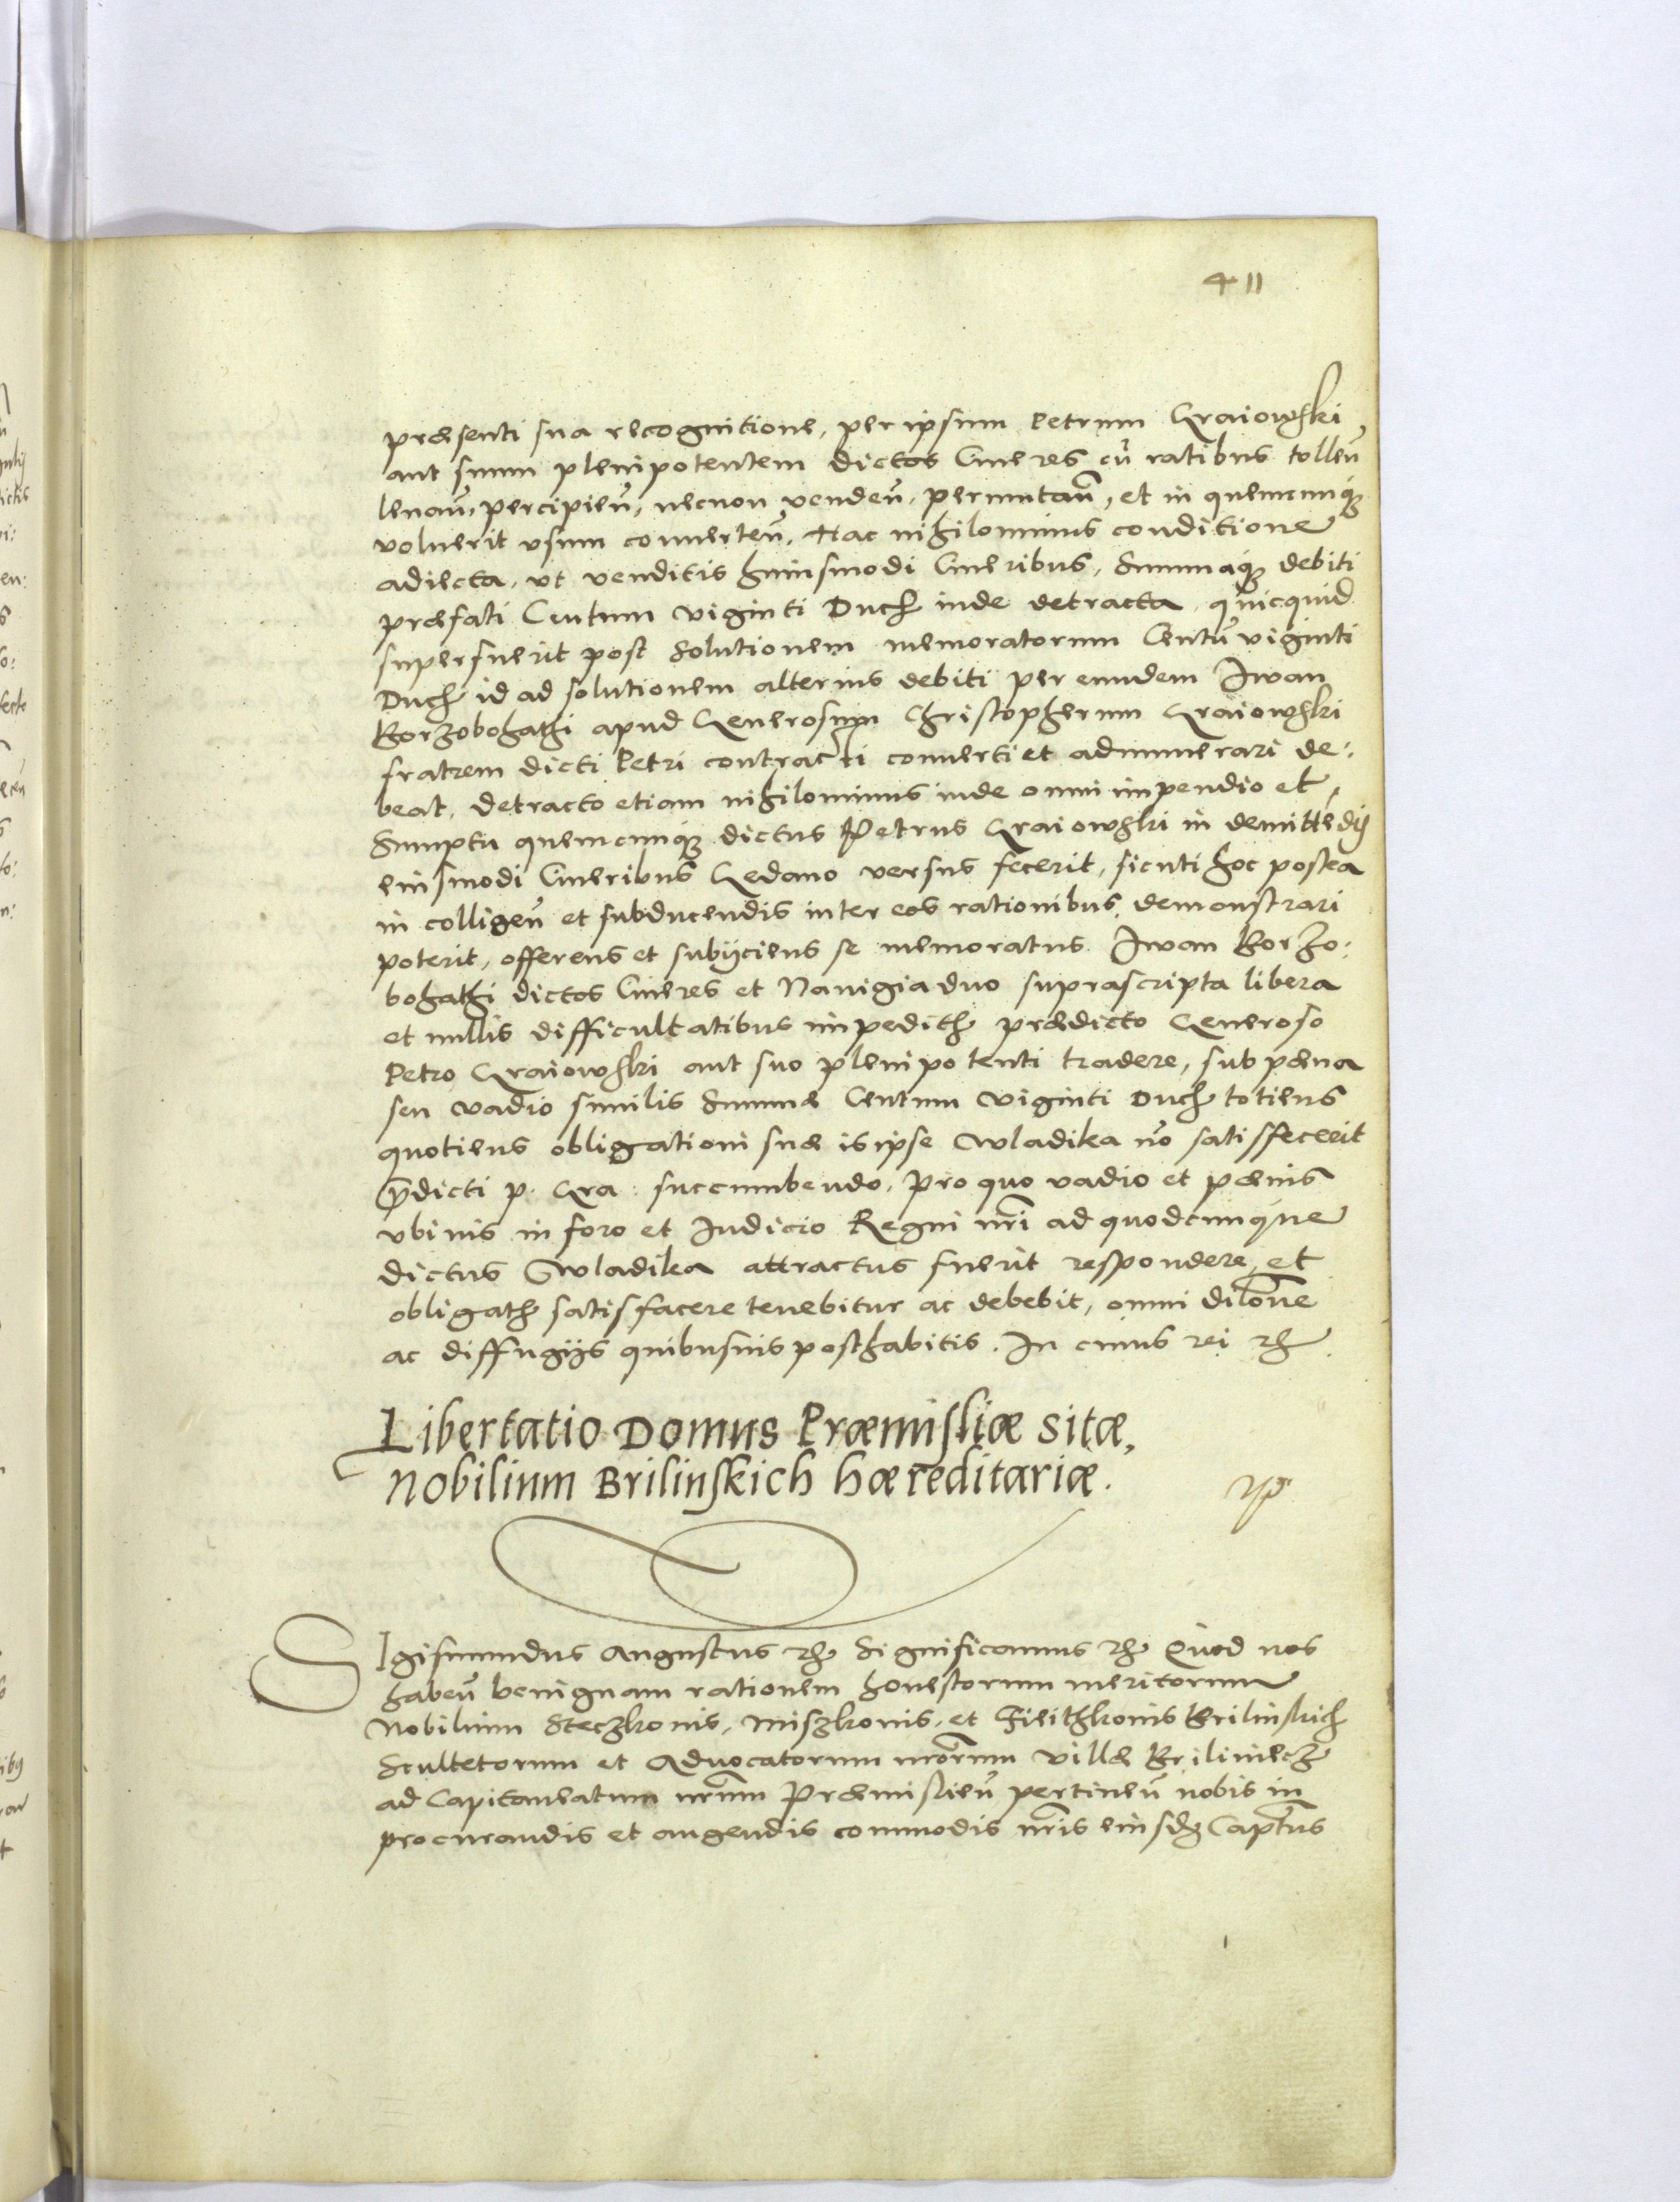 411
præsenti sua recognitione, per ipsum Petrum Graiowski,
aut suum plenipotentem dictos Cineres cũ ratibus tolleñ
leuañ, percipieñ, necnon vendeñ, permutañ, et in quemcunq3
voluerit vsum conuerteñ. Hac nihilominus conditione
adiecta, vt venditis huiusmodi Cineribus, Summaq3 debiti
præfati Centum viginti Duch inde detracta, quicquid
superfuerit post solutionem memoratorum Centũ viginti
Duch id ad solutionem alterius debiti per eundem Iwan
Borzobohathi apud Generosum Christopherum Graiowski
fratrem dicti Petri contracti conuerti et adnumerari de:
beat, detracto etiam nihilominus inde omni impendio et
Sumptu quemcunq3 dictus Petrus Graiowski in demittẽdis
eiusmodi Cineribus Gedano versus fecerit, sicuti hoc postea
in colligeñ et subducendis inter eos rationibus demonstrari
poterit, offerens et subijciens se memoratus Iwan Borzo:
bohathi dictos Cineres et Nauigia duo suprascripta libera
et nullis difficultatibus impedith prædicto Generoso
Petro Graiowski aut suo plenipotenti tradere, sub pæna
seu vadio similis Summæ Centum viginti Duch totiens
quotiens obligationi suæ is ipse Wladika nõ satisfecerit
p̃dicti p. Gra: succumbendo, pro quo vadio et pænis
vbiuis in foro et Iudicio Regni nr̃i ad quodcunque
dictus Wladika attractus fuerit respondere, et
obligath satisfacere tenebitur ac debebit, omni dilõne
ac diffugijs quibusuis posthabitis. In cuius rei rh
Libertatio Domus Præmisliæ sitæ,
Nobilium Brilinskich hæreditariæ.
SIgismundus Augustus rh Significamus rh Quod nos
habeñ benignam rationem honestorum meritorum
Nobilium Steczkonis, Miszkonis, et Fieithkonis Brilinskich
Scultetorum et Aduocatorum nr̃orum villæ Briliniecz
ad Capitaneatum nr̃um Præmislieñ pertineñ nobis in
procurandis et augendis commodis nr̃is eiusd3 Capt̃us